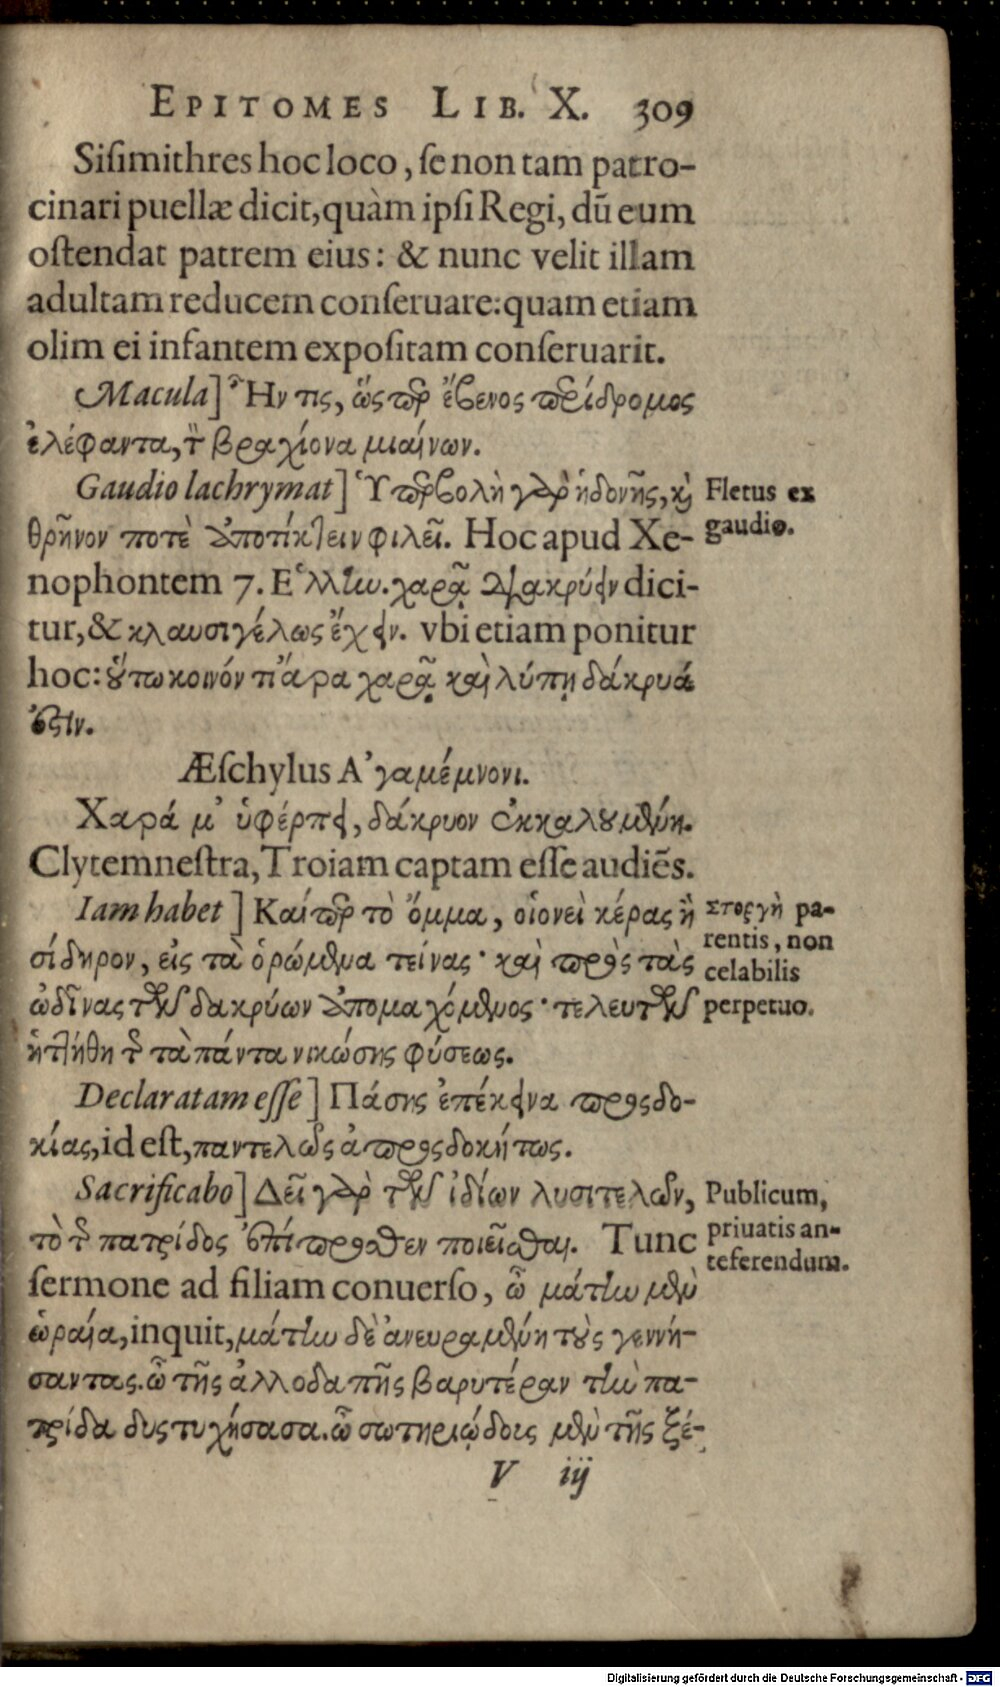 EPITOMES LIB. X. 309
Siſimithres hoc loco, ſe non tam patro-
cinari puellæ dicit, quàm ipſi Regi, dũ eum
oſtendat patrem eius: & nunc velit illam
adultam reducem conſeruare: quam etiam
olim ei infantem expoſitam conſeruarit.
Macula] Ἦν τις, ὥσπερ ἔβενος περίδρομος
ἐλέφαντα, τ͂ βραχίονα μιαίνων.
Gaudio lachrymat] Ὑπερβολὴ γὰρ ἡδονῆς, κỳ
θρῆνον ποτὲ ἀποτίκτειν φιλεῖ. Hoc apud Xe-
nophontem 7. Ἑλλἰω. χαρᾷ δακρύειν dici-
tur, & κλαυσιγέλως ἔχειν. vbi etiam ponitur
hoc: ὅτω κοινόν τι ἄρα χαρᾷ καὶ λύπῃ δάκρυά
ὅξιν.
Æſchylus Ἀγαμέμνονι.
Χαρά μ' ὑφέρπει, δάκρυον ἐκκαλουμένη.
Clytemneſtra, Troiam captam eſſe audiẽs.
Iam habet] Καίπερ τὸ ὄμμα, οἱονεὶ κέρας ἢ
σίδηρον, εἰς τὰ ὁρώμενα τείνας· καὶ πρὸς τὰς
ὠδῖνας τῶν δακρύων ἀπομαχόμενος· τελευτῶν
ἡττήθη τ͂ τὰ πάντα νικώσης φύσεως.
Declaratam eſſe] Πάσης ἐπέκεινα προσδο-
κίας, id eſt, παντελῶς ἀπροσδοκήτως.
Sacrificabo] Δεῖ γὰρ τῶν ἰδίων λυσιτελῶν,
τὸ τ͂ πατρίδος ἐπίπροσθεν ποιεῖσθαι. Tunc
ſermone ad filiam conuerſo, ὦ μάτην μὲν
ὡραία, inquit, μάτην δὲ ἀνευραμένη τοὺς γεννή-
σαντας. ὦ τῆς ἀλλοδαπῆς βαρυτέραν τὴν πα-
τρίδα δυστυχήσασα. ὦ σωτηριώδους μὲν τῆς ξέ-
V iij
Fletus ex
gaudio.
Στοργὴ pa-
rentis, non
celabilis
perpetuo.
Publicum,
priuatis an-
teferendum.
Digitalisierung gefördert durch die Deutsche Forschungsgemeinschaft - DFG